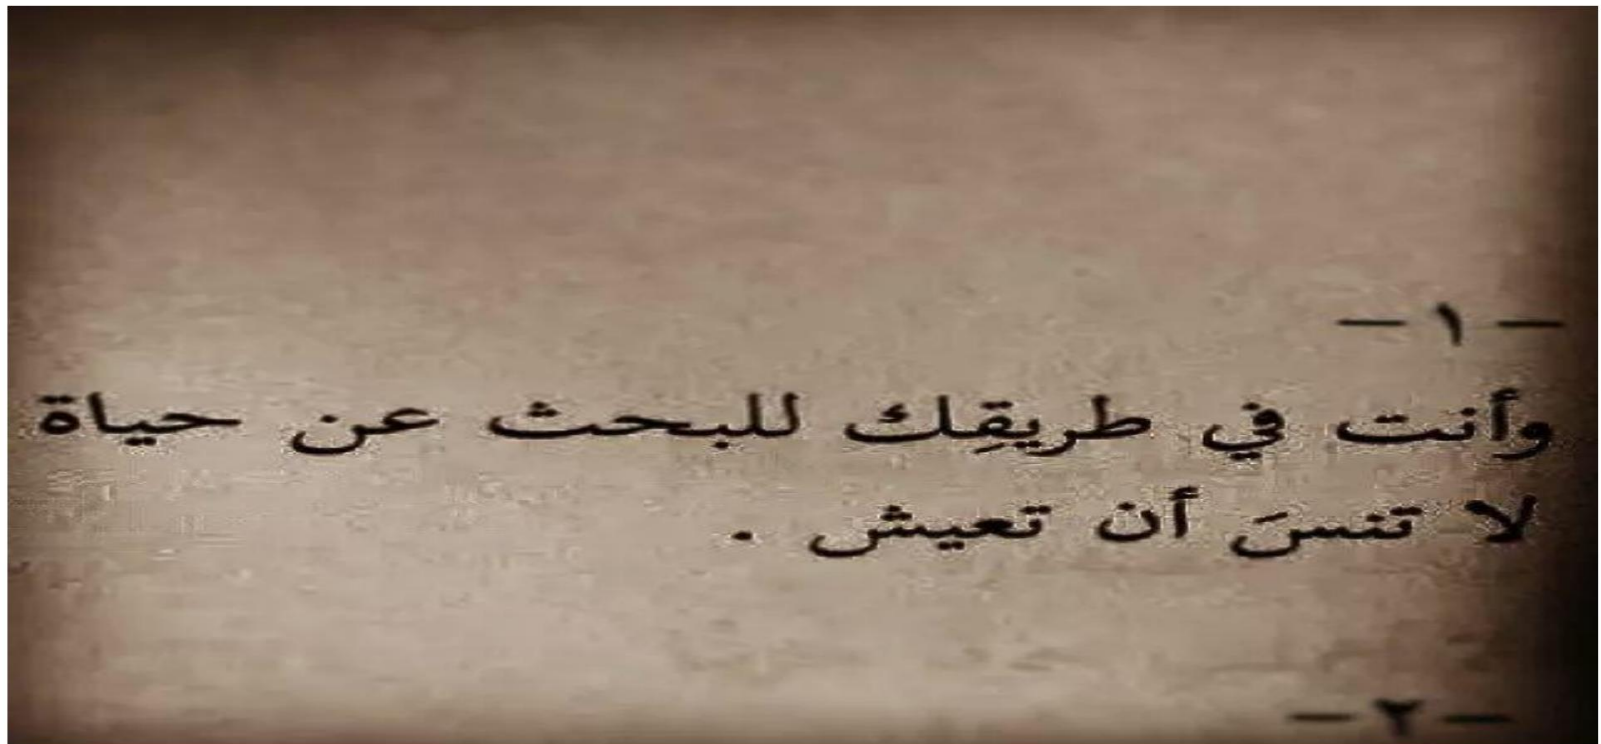 - ١ -
وأنت في طريقِك للبحث عن حياة
لا تنسَ أن تعيش .
- ٢ -